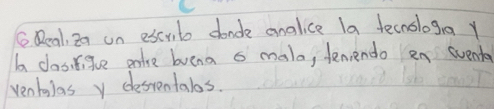 6. Realiza un escrito donde analice la tecnologia y
la clasifique entre buena o mala, teniendo en cuenta
ventajas y desventajas.